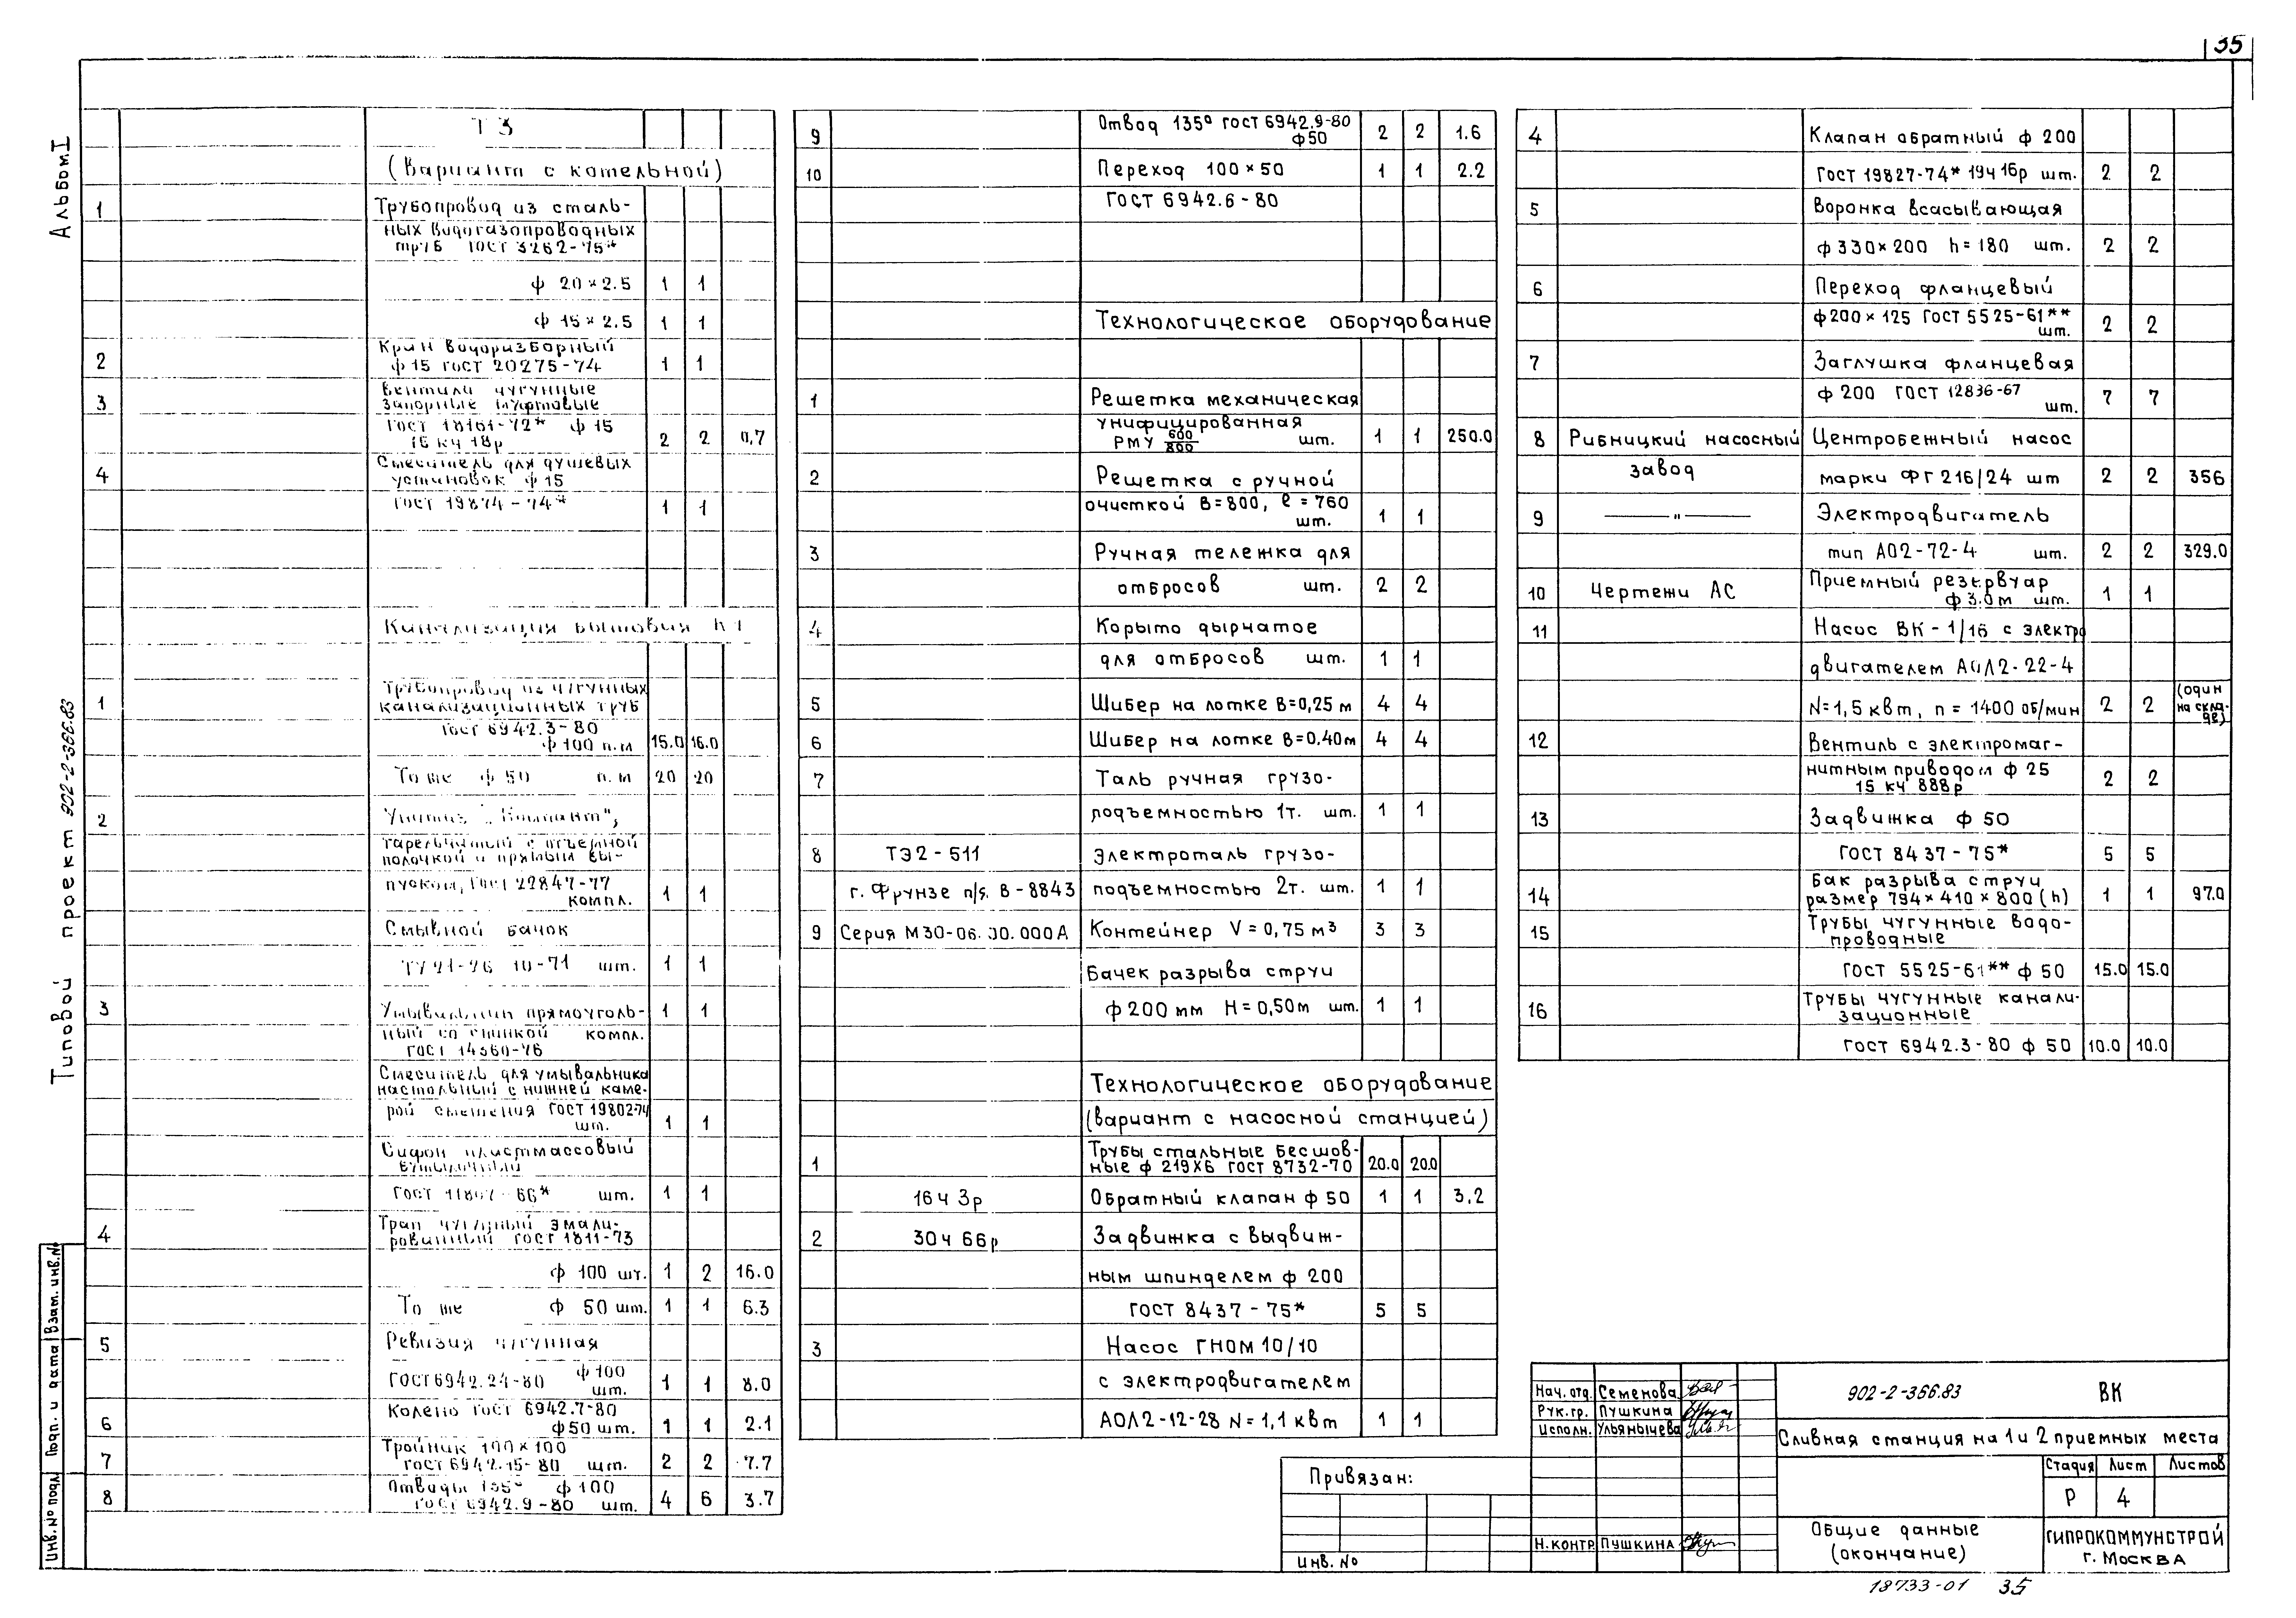 35
Альбом I
Типовой проект 902-2-366.83
Инв.№ подл. Подп. и дата Взам. инв.№
Т3
(Вариант с котельной)
1 Трубопровод из сталь-
ных водогазопроводных
труб ГОСТ 3262-75*
ф 20×2.5 1 1
ф 15×2.5 1 1
2 Кран водоразборный
ф 15 ГОСТ 20275-74 1 1
3 Вентили чугунные
запорные муфтовые
ГОСТ 18161-72* ф 15
15 кч 18р 2 2 0,7
4 Смеситель для душевых
установок ф 15
ГОСТ 19874-74* 1 1
Канализация бытовая К1
1 Трубопровод из чугунных
канализационных труб
ГОСТ 6942.3-80
ф 100 п.м 15.0 16.0
То же ф 50 п.м 20 20
2 Унитаз "Компакт",
тарельчатый с отъемной
полочкой и прямым вы-
пуском, ГОСТ 22847-77
компл. 1 1
Смывной бачок
ТУ 21-26 10-71 шт. 1 1
3 Умывальник прямоуголь- 1 1
ный со спинкой компл.
ГОСТ 14360-76
Смеситель для умывальника
настольный с нижней каме-
рой смешения ГОСТ 19802-74
шт. 1 1
Сифон пластмассовый
бутылочный
ГОСТ 11867-66* шт. 1 1
4 Трап чугунный эмали-
рованный ГОСТ 1811-73
ф 100 шт. 1 2 16.0
То же ф 50 шт. 1 1 6.3
5 Ревизия чугунная
ГОСТ 6942.24-80 ф 100
шт. 1 1 8.0
6 Колено ГОСТ 6942.7-80
ф 50 шт. 1 1 2.1
7 Тройник 100×100
ГОСТ 6942.15-80 шт. 2 2 7.7
8 Отводы 135° ф 100
ГОСТ 6942.9-80 шт. 4 6 3.7
9 Отвод 135° ГОСТ 6942.9-80
ф 50 2 2 1.6
10 Переход 100×50 1 1 2.2
ГОСТ 6942.6-80
Технологическое оборудование
1 Решетка механическая
унифицированная
РМУ 600/800 шт. 1 1 250.0
2 Решетка с ручной
очисткой В=800, ℓ=760
шт. 1 1
3 Ручная тележка для
отбросов шт. 2 2
4 Корыто дырчатое
для отбросов шт. 1 1
5 Шибер на лотке В=0,25 м 4 4
6 Шибер на лотке В=0.40м 4 4
7 Таль ручная грузо-
подъемностью 1т. шт. 1 1
8 ТЭ2-511 Электроталь грузо-
г. Фрунзе п/я. В-8843 подъемностью 2т. шт. 1 1
9 Серия М30-06.00.000А Контейнер V=0,75 м³ 3 3
Бачек разрыва струи
ф 200 мм Н=0,50м шт. 1 1
Технологическое оборудование
(вариант с насосной станцией)
1 Трубы стальные бесшов-
ные ф 219х6 ГОСТ 8732-70 20.0 20.0
16ч 3р Обратный клапан ф 50 1 1 3.2
2 30ч 66р Задвижка с выдвиж-
ным шпинделем ф 200
ГОСТ 8437-75* 5 5
3 Насос ГНОМ 10/10
с электродвигателем
АОЛ2-12-28 N=1,1 квт 1 1
4 Клапан обратный ф 200
ГОСТ 19827-74* 19ч 16р шт. 2 2
5 Воронка всасывающая
ф 330×200 h=180 шт. 2 2
6 Переход фланцевый
ф200×125 ГОСТ 5525-61**
шт. 2 2
7 Заглушка фланцевая
ф 200 ГОСТ 12836-67
шт. 7 7
8 Рибницкий насосный Центробежный насос
завод марки ФГ 216/24 шт 2 2 356
9 —"— Электродвигатель
тип АО2-72-4 шт. 2 2 329.0
10 Чертежи АС Приемный резервуар
ф 3.0м шт. 1 1
11 Насос ВК-1/16 с электро
двигателем АОЛ2-22-4
N=1,5 квт, n=1400 об/мин 2 2 (один на скла-де)
12 Вентиль с электромаг-
нитным приводом ф 25
15 кч 888р 2 2
13 Задвижка ф 50
ГОСТ 8437-75* 5 5
14 Бак разрыва струи
размер 794×410×800 (h) 1 1 97.0
15 Трубы чугунные водо-
проводные
ГОСТ 5525-61** ф 50 15.0 15.0
16 Трубы чугунные канали-
зационные
ГОСТ 6942.3-80 ф 50 10.0 10.0
Привязан:
Инв. №
Нач. отд. Семенова
Рук.гр. Пушкина
Исполн. Ульянычева
Н.контр Пушкина
902-2-366.83 ВК
Сливная станция на 1 и 2 приемных места
Стадия Лист Листов
Р 4
Общие данные
(окончание)
ГИПРОКОММУНСТРОЙ
г. Москва
18733-01 35